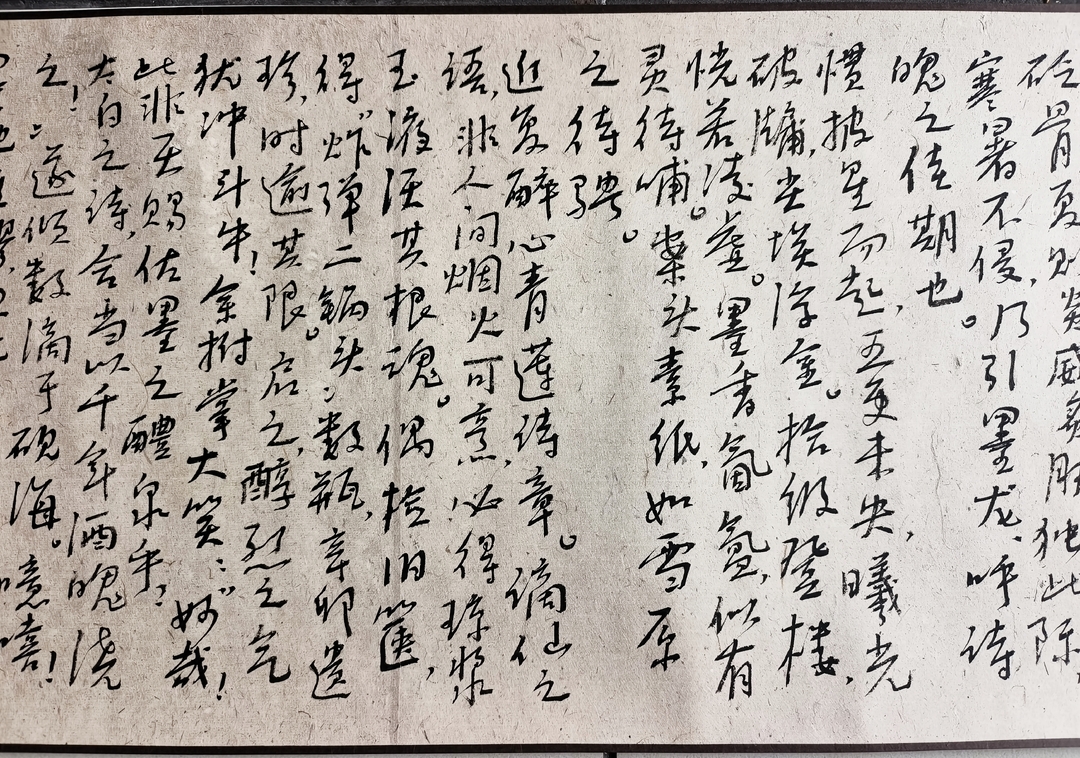 砭骨夏则炎威炙肤独此际,
寒暑不侵,乃引墨龙、呼诗
魄之佳期也。
惯披星而起,五更未央,曦光
破牖,尘埃浮金。拾级登楼,
恍若凌虚。墨香氤氲,似有
灵待哺。案头素纸,如雪原
之待骋。
近复醉心青莲诗章。谪仙之
语,非人间烟火可烹,必得琼浆
玉液沃其根魂。偶检旧箧,
得“炸弹二锅头”数瓶,辛卯遗
珍,时逾其限。启之,醇烈之气
犹冲斗牛!余拊掌大笑:“妙哉!
此非天赐佐墨之醴泉乎?
太白之诗,合当以千年酒魄浇
之!”遂倾数滴于砚海。噫嘻!